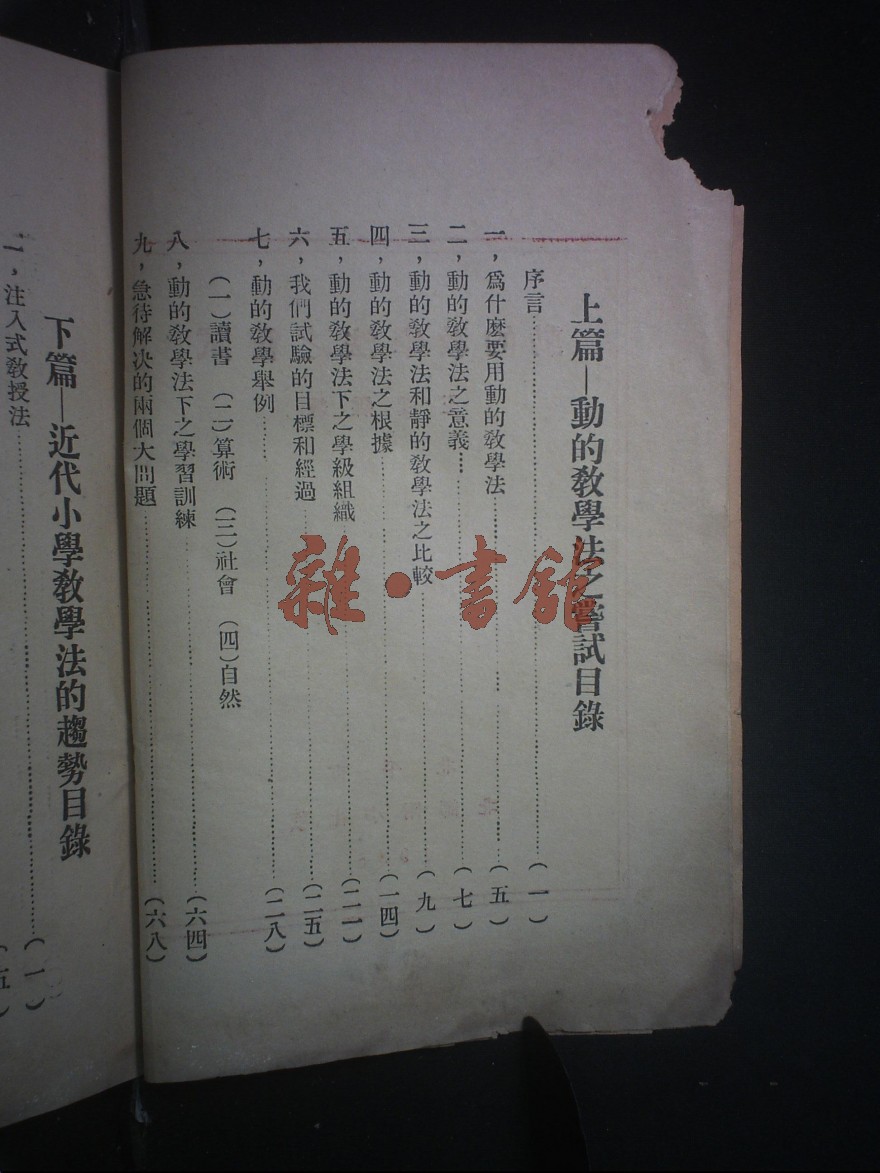 上篇—動的教學法之嘗試目錄
序言……(一)
一，爲什麽要用動的教學法……(五)
二，動的教學法之意義……(七)
三，動的教學法和靜的教學法之比較……(九)
四，動的教學法之根據……(一四)
五，動的教學法下之學級組織……(二一)
六，我們試驗的目標和經過……(二五)
七，動的教學舉例……(二八)
(一)讀書 (二)算術 (三)社會 (四)自然
八，動的教學法下之學習訓練……(六四)
九，急待解決的兩個大問題……(六八)
下篇—近代小學教學法的趨勢目錄
一，注入式教授法……(一)
雜·書館